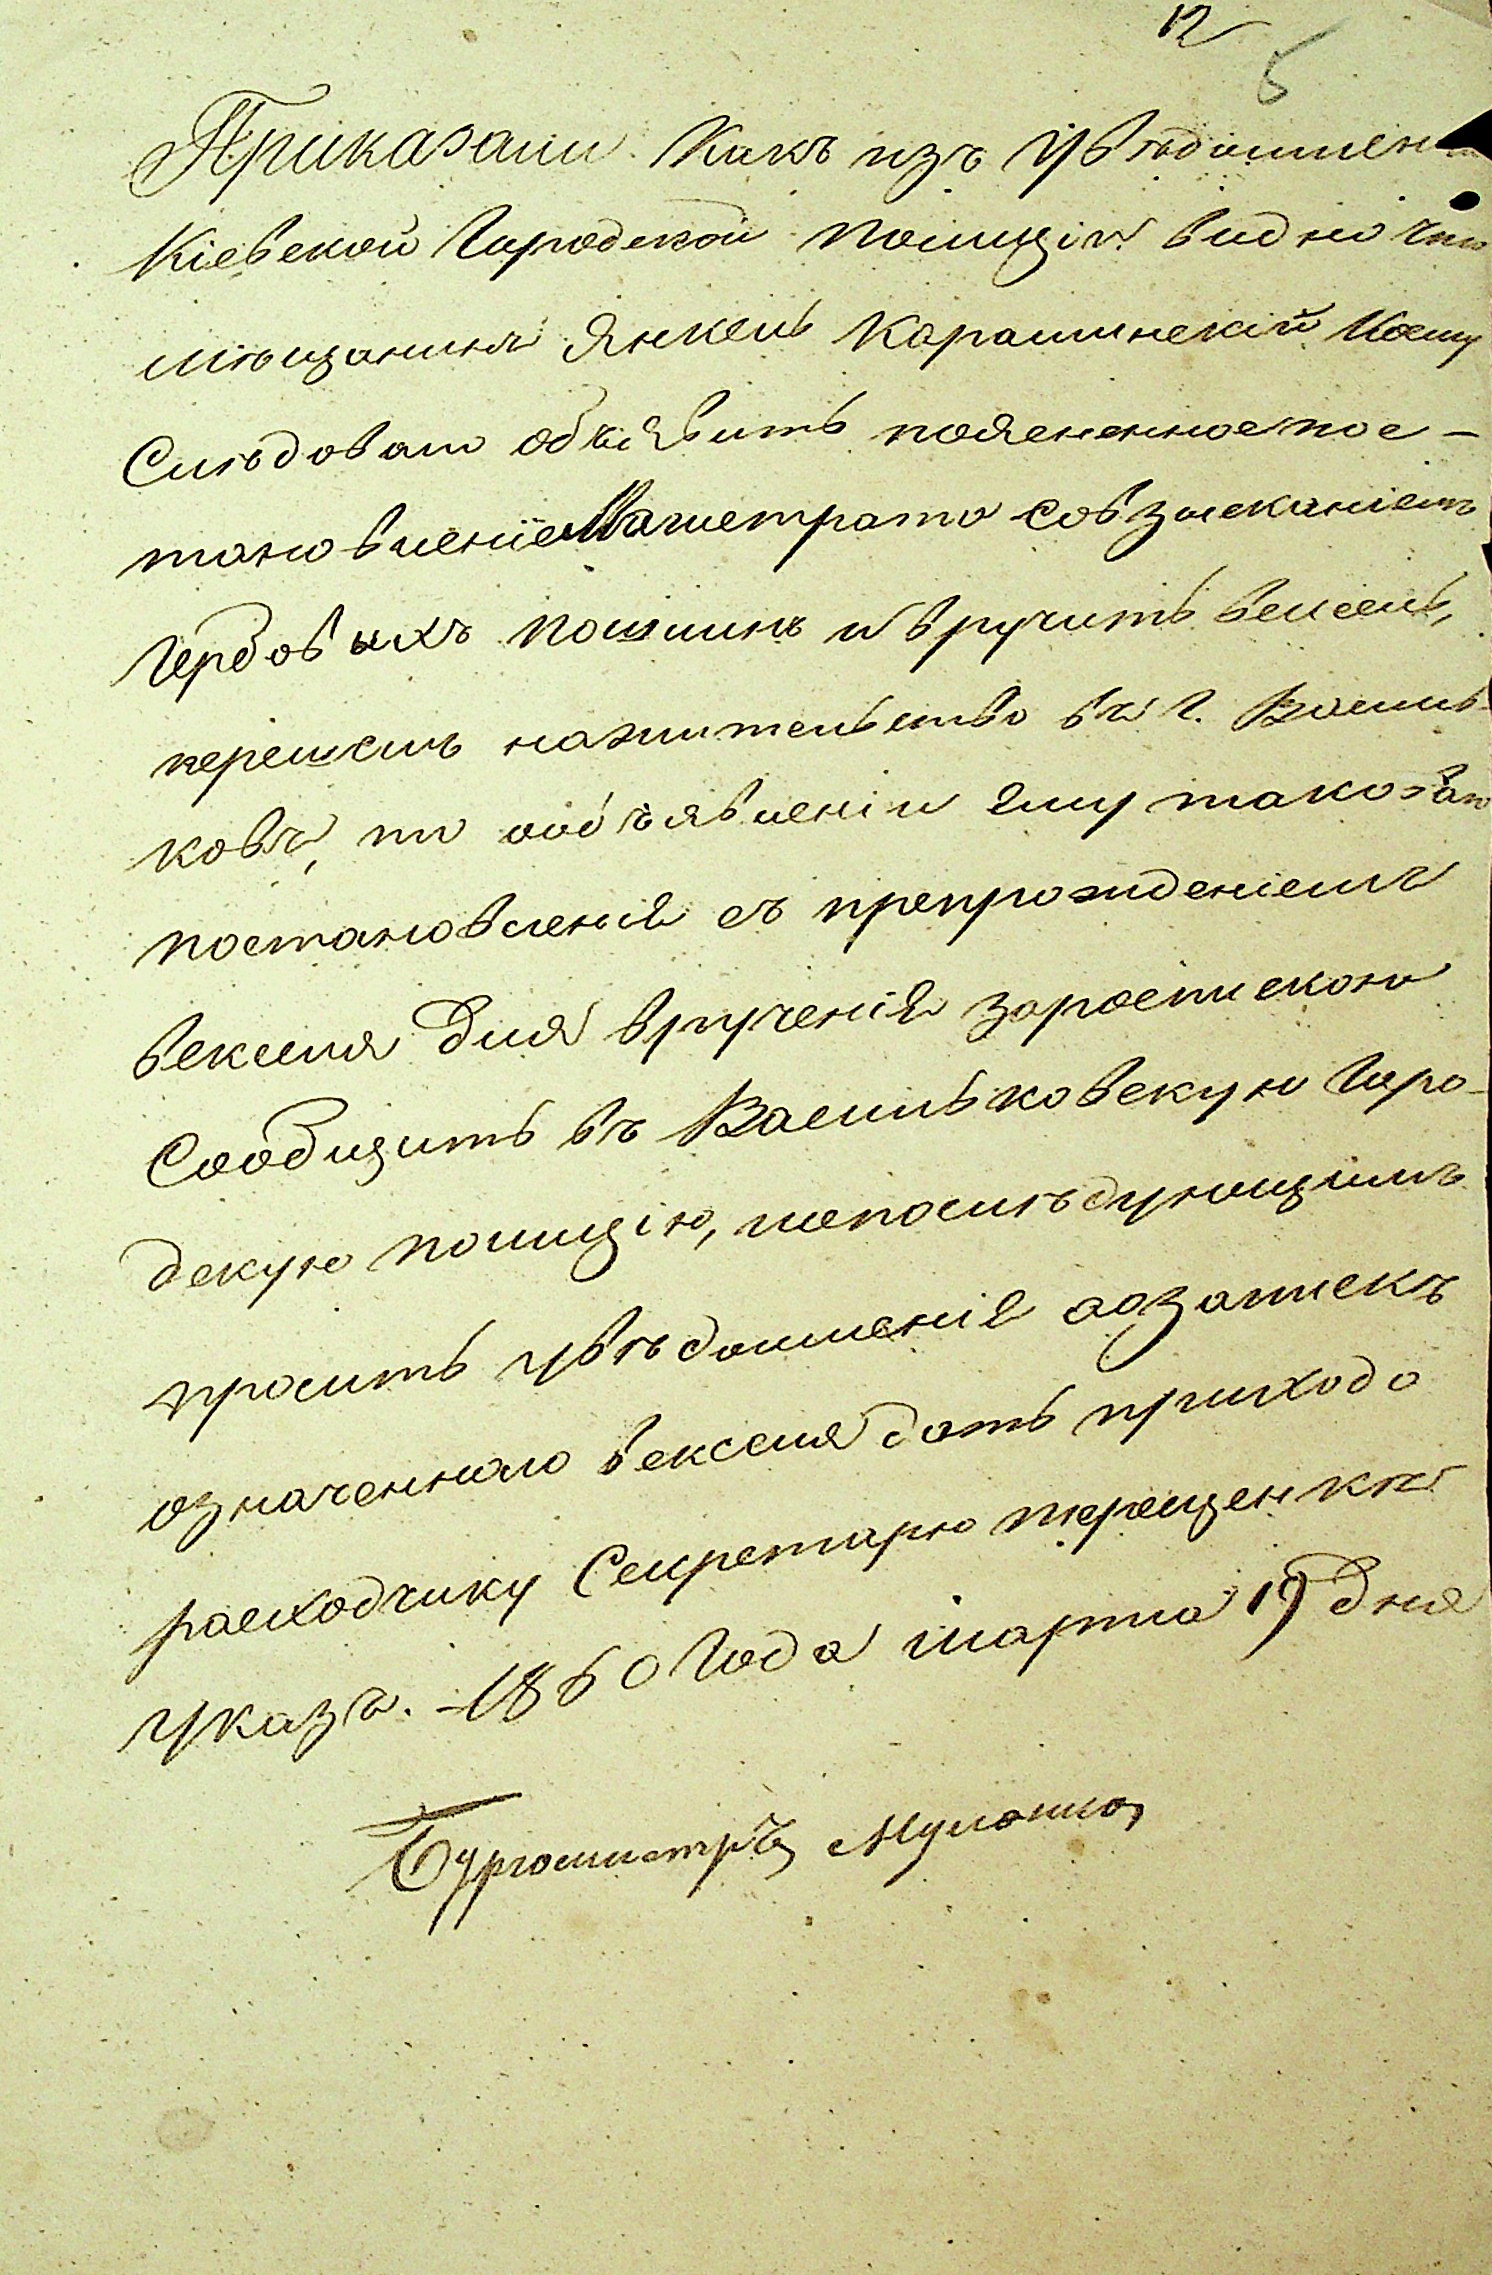 12
5
Приказали. Какъ изъ Увѣдомлен
Кіевской Городской Полиціи видно что
мѣщанинъ Янкель Карашинскій коему
Слѣдовало объявить поясненное пос-
тановленіе Магистрата совзысканіемъ
гербовыхъ пошлинъ и вручить вексель,
перешелъ нажительство въ г. Василь-
ковъ, то ообъявленіи ему таковаго
постановленія съ препровожденіемъ
векселя для врученія зароспискою
Сообщить въ Васильковскую Горо-
дскую полицію, ипослѣдующимъ
просить увѣдомленія аозапискѣ
означеннаго векселя дать приходо
расходчику Секретарю Терещенкѣ
указъ. 1860 года марта 19 дня
Бургомистръ